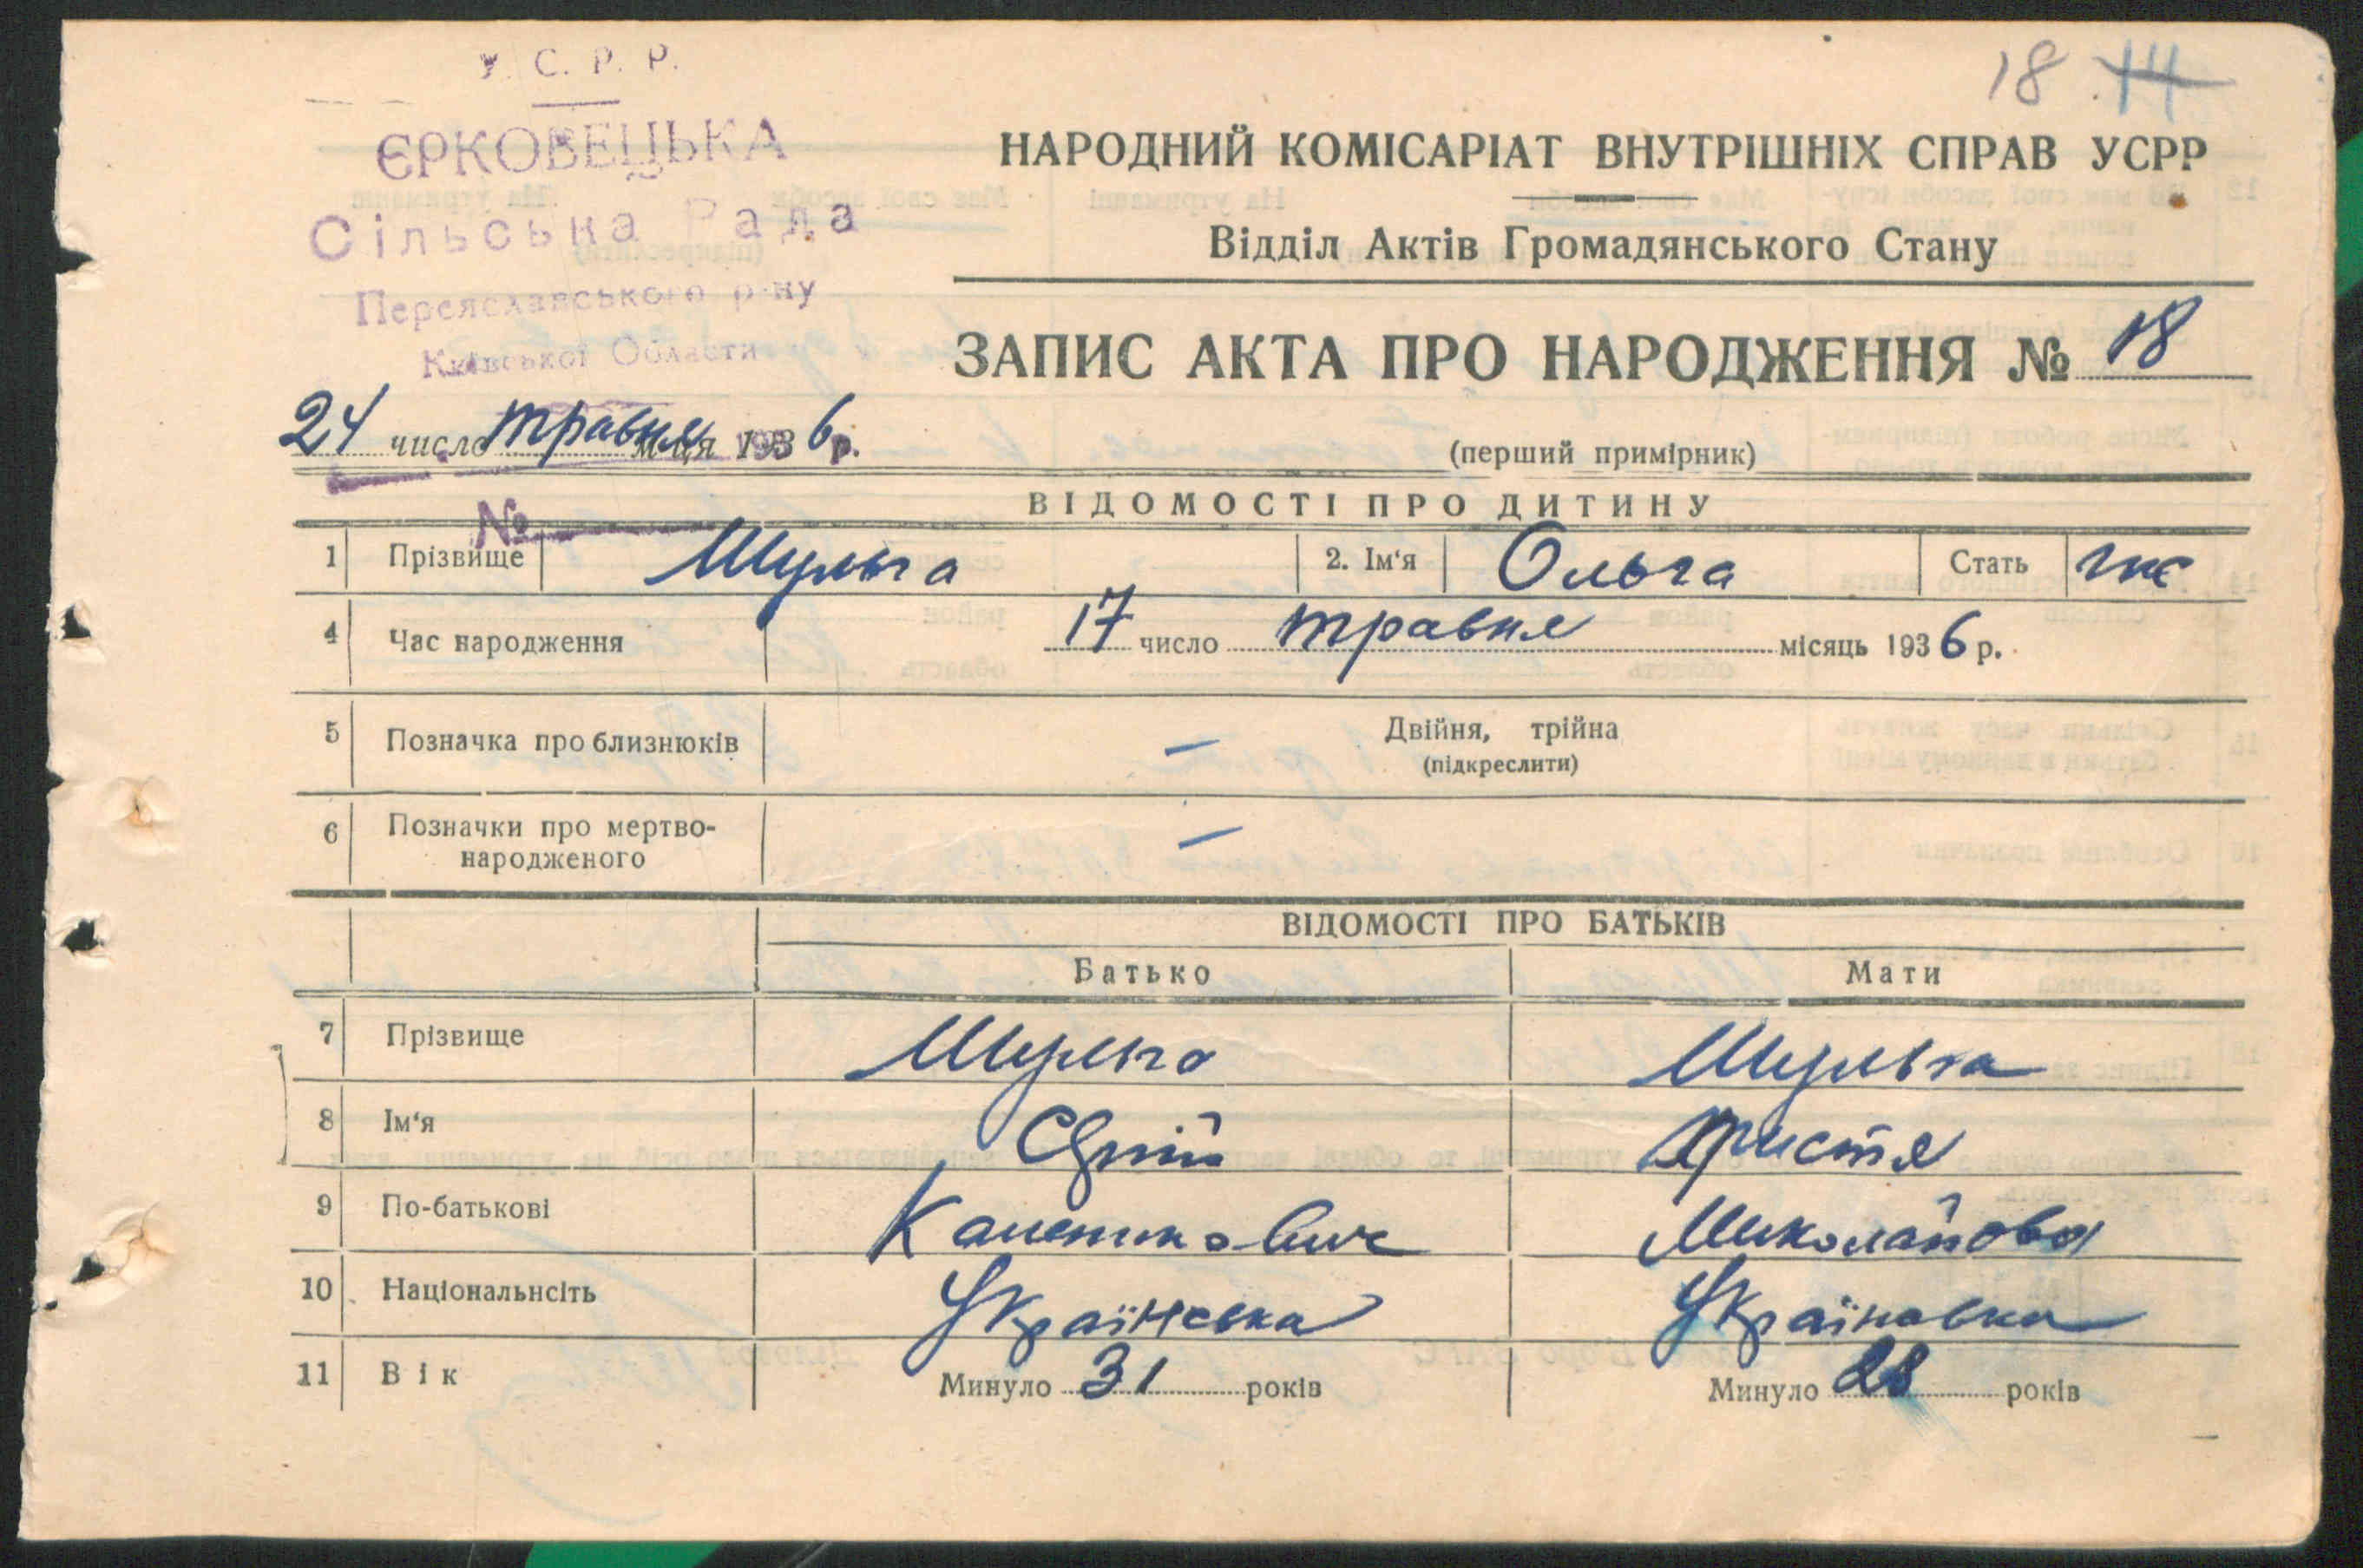 У. С. Р. Р.
ЄРКОВЕЦЬКА
Сільська Рада
Переяславського р-ну
Київської Області
18 14
НАРОДНИЙ КОМІСАРІАТ ВНУТРІШНІХ СПРАВ УСРР
Відділ Актів Громадянського Стану
ЗАПИС АКТА ПРО НАРОДЖЕННЯ № 18
24 число травня м-ця 1936 р.
(перший примірник)
№
ВІДОМОСТІ ПРО ДИТИНУ
1 Прізвище Шульга 2. Ім'я Ольга Стать жіс
4 Час народження 17 число травня місяць 1936 р.
5 Позначка про близнюків — Двійня, трійна
(підкреслити)
6 Позначки про мертво-
народженого —
ВІДОМОСТІ ПРО БАТЬКІВ
Батько Мати
7 Прізвище Шульга Шульга
8 Ім'я Христя
9 По-батькові Миколайовна
10 Національнсіть Українська Українська
11 Вік Минуло 31 років Минуло 28 років